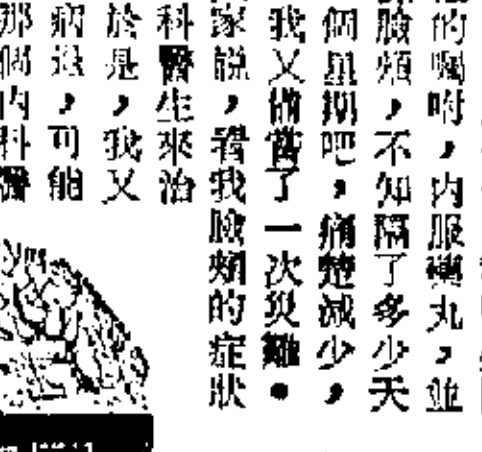 的囑咐，内服藥丸，並
臉頰，不知隔了多少天
個星期吧，痛楚減少，
我又備嘗了一次災難。
家說，看我臉頰的症狀
科醫生來治
於是，我又
病退，可能
那個内科醫